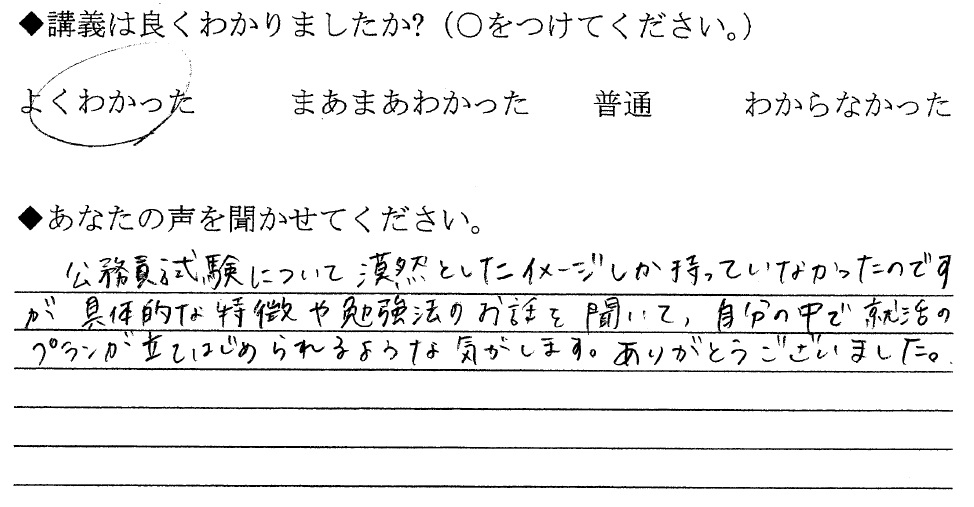 ◆講義は良くわかりましたか?（○をつけてください。）
よくわかった まあまあわかった 普通 わからなかった
◆あなたの声を聞かせてください。
公務員試験について漠然としたイメージしか持っていなかったのです
が具体的な特徴や勉強法のお話を聞いて，自分の中で就活の
プランが立てはじめられるような気がします。ありがとうございました。